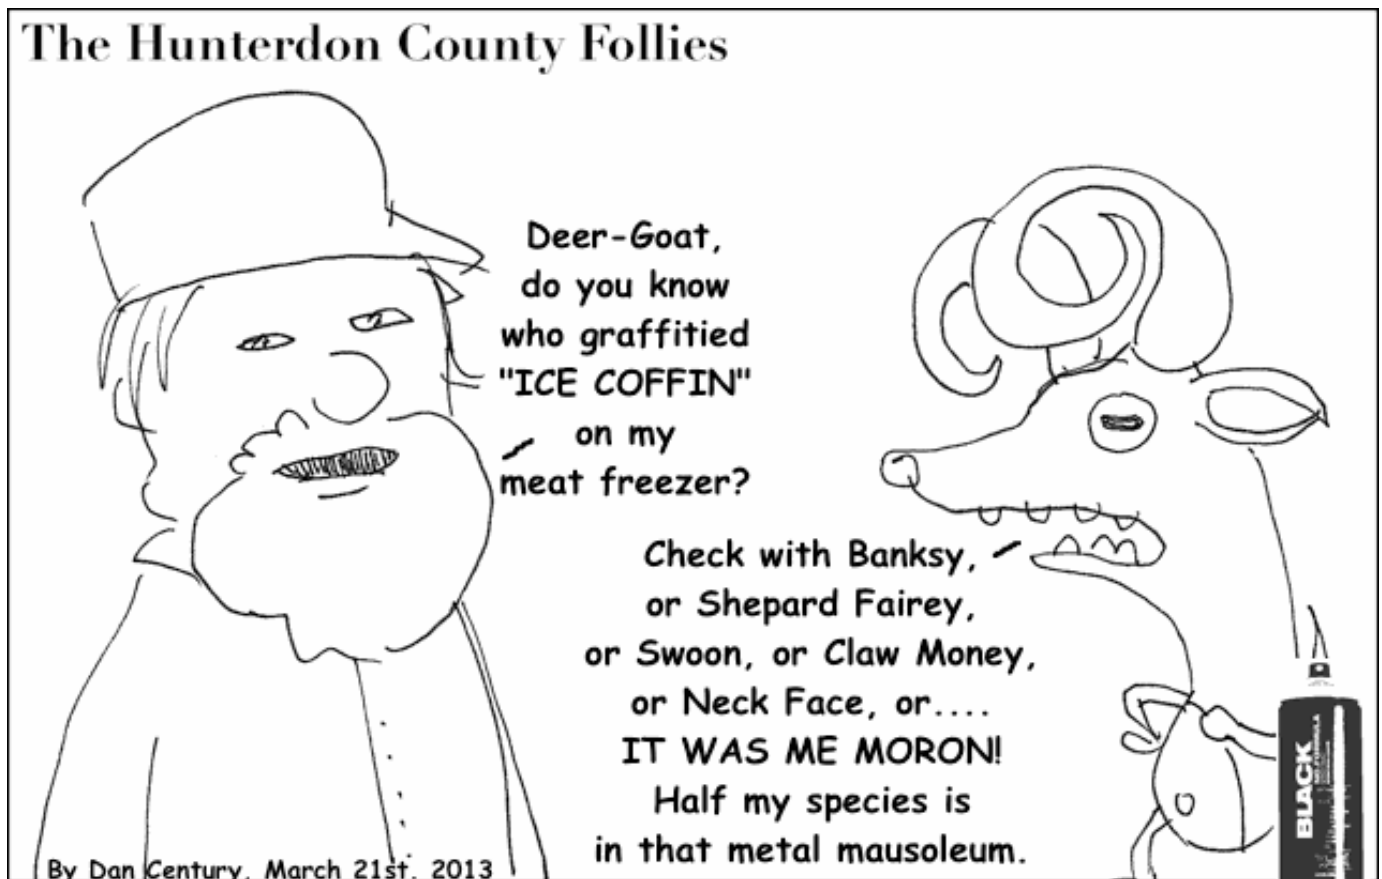 The Hunterdon County Follies
Deer-Goat,
do you know
who graffitied
"ICE COFFIN"
on my
meat freezer?
Check with Banksy,
or Shepard Fairey,
or Swoon, or Claw Money,
or Neck Face, or....
IT WAS ME MORON!
Half my species is
in that metal mausoleum.
BLACK
By Dan Century, March 21st, 2013